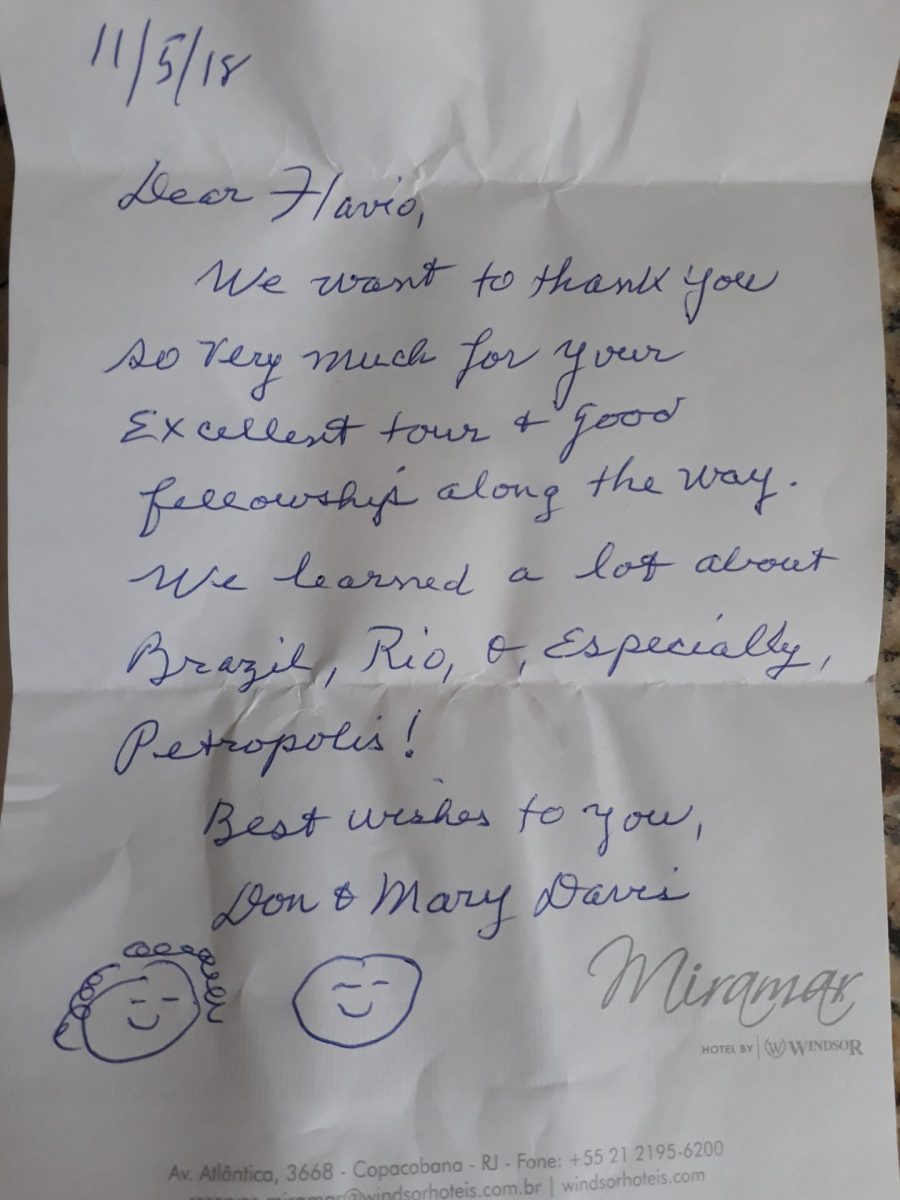 11/5/18
Dear Flavio,
We want to thank you
so very much for your
Excellent tour & good
fellowship along the way.
We learned a lot about
Brazil, Rio, &, Especially,
Petropolis!
Best wishes to you,
Don & Mary Davis
Miramar
HOTEL BY | W WINDSOR
Av. Atlântica, 3668 - Copacabana - RJ - Fone: +55 21 2195-6200
reservas.miramar@windsorhoteis.com.br | windsorhoteis.com